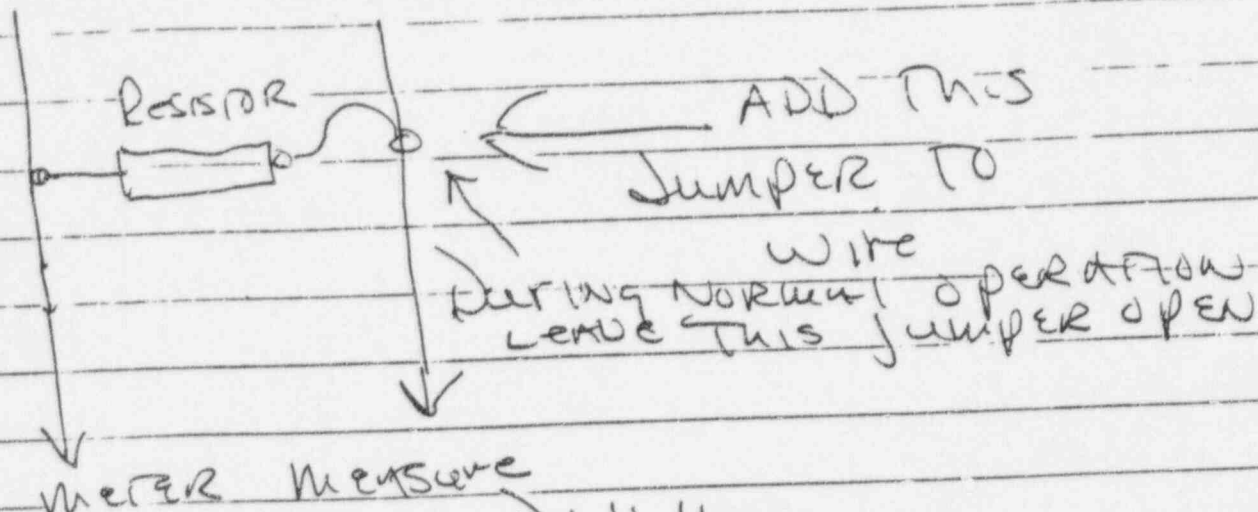 Resistor
ADD This
Jumper TO
wire
During Normal operation
Leave This jumper open
Meter Measure